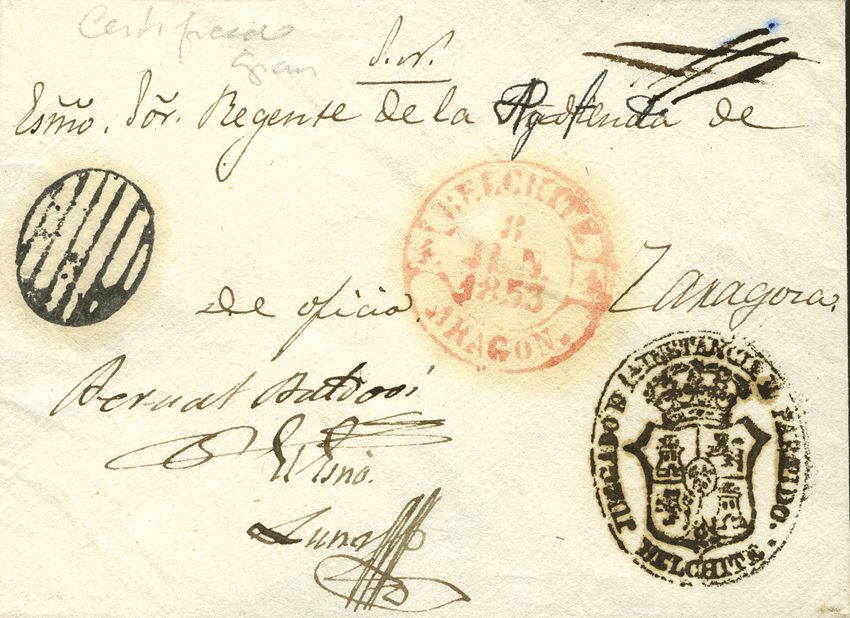 Certificado
S. N.
Esmô. Sôr. Regente de la Audiencia de
BELCHITE
8
JUN.
1853
ARAGON.
Zaragoza.
de oficio
JUZGADO DE 1A. INSTANCIA Y PARTIDO.
BELCHITE
Bernat Baldoví
El Esno.
Luna